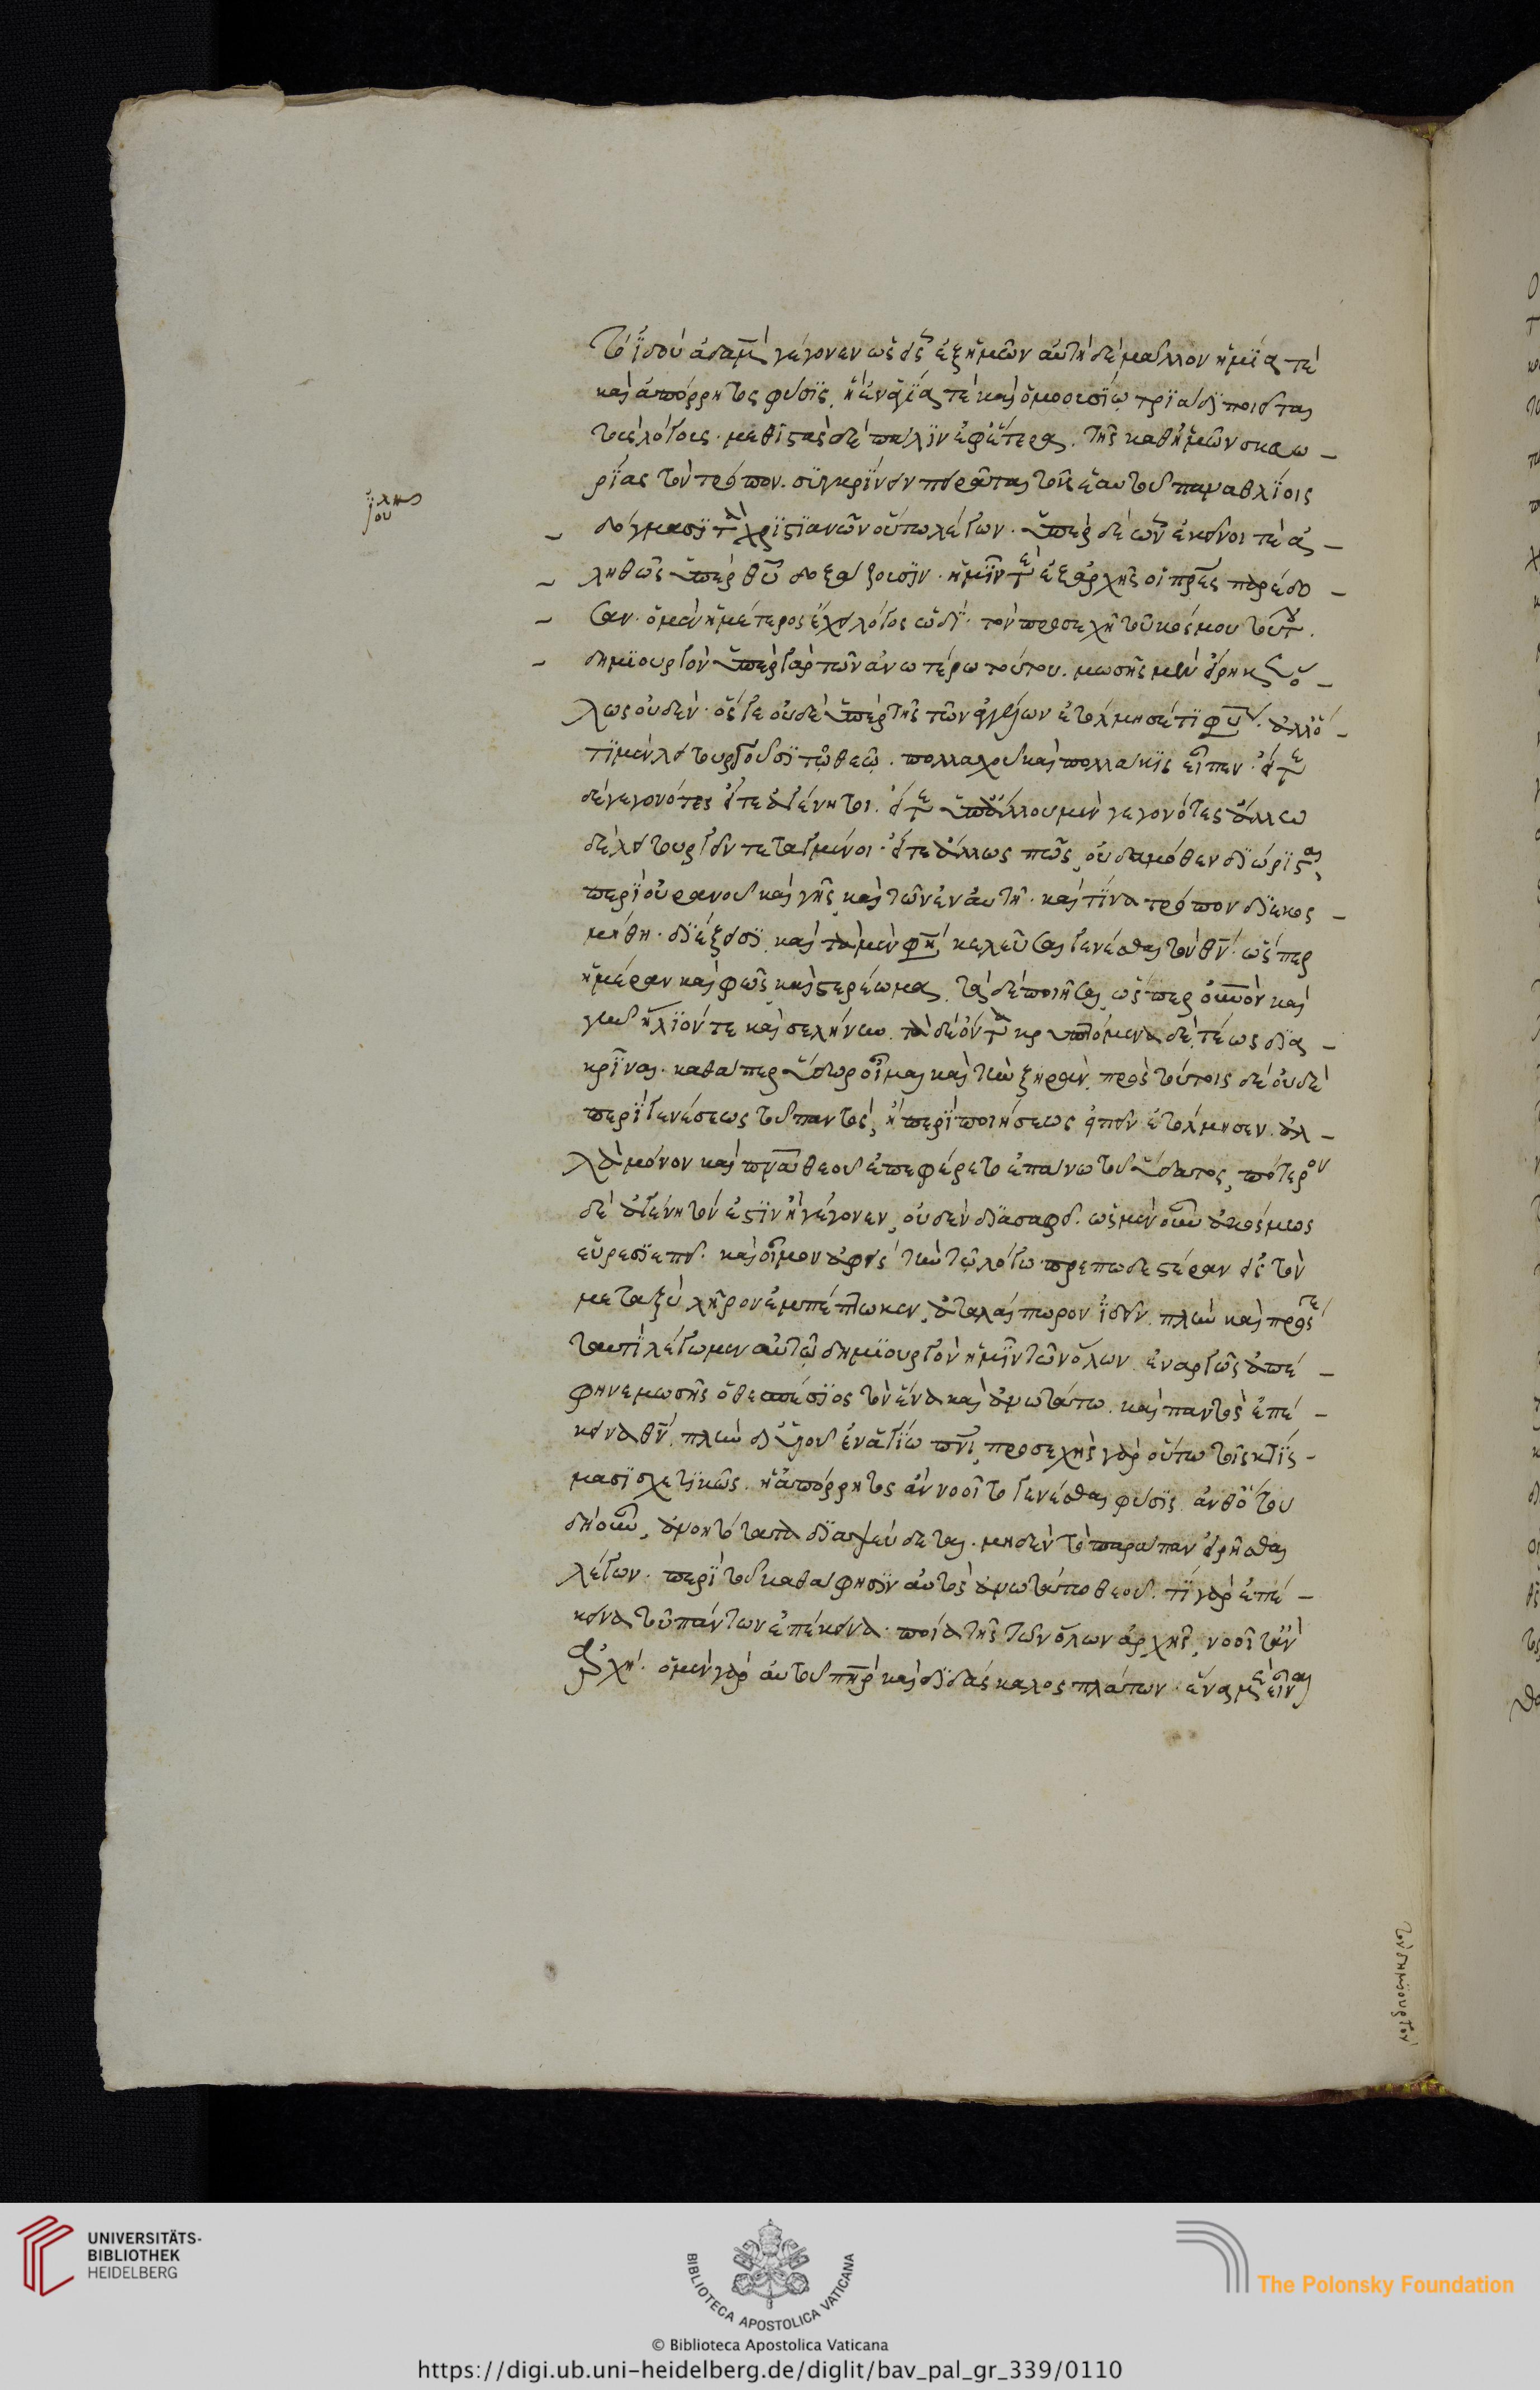 τὸ ἰδοὺ ἀδὰμ γέγονεν ὡς εἷς ἐξ ἡμῶν αὐτὴ δὲ μᾶλλον ἡ μία τὲ
καὶ ἀπόρρητος φύσις, ἡ ἐν ἁγία τὲ καὶ ὁμοουσίω τριάδι ποιεῖται
τοὺς λόγους. μεθίστησι δὲ πάλιν ἐφ' ἕτερα, τῆς καθ' ἡμῶν σκαιω-
ρίας τὸν τρόπον. συγκρίνειν πειρᾶται τοῖς ἑαυτοῦ παναθλίοις
δόγμασι τὰ χριστιανῶν οὕτω λέγων. ὑπὲρ δὲ ὧν ἐκεῖνοι τὲ ἀ-
ληθῶς ὑπὲρ θῦ δοξάζουσιν. ἡμῖν τὲ ἐξαρχῆς οἱ πρ̅ε̅ς παρέδο-
σαν. ὁ μὲν ἡμέτερος ἔχει λόγος ὡδί. τὸν προσεχῆ τοῦ κόσμου τούτου.
δημιουργὸν ὑπὲρ γὰρ τῶν ἀνωτέρω τούτου. μωσῆς μὲν εἴρηκεν ὅ-
λως οὐδέν. ὅς γε οὐδὲ ὑπὲρ τῆς τῶν ἀγγέλων ἐτόλμησέ τι φύσεως. ἀλλ' ὅ-
τι μὲν λειτουργοῦσι τῷ θεῷ. πολλαχοῦ καὶ πολλάκις εἶπεν. εἴτε
δὲ γεγονότες εἴτε ἀγένητοι. εἴτε ὑπ' ἄλλου μὲν γεγονότες ἄλλω
δὲ λειτουργεῖν τεταγμένοι. εἴτε ἄλλως πῶς, οὐδαμόθεν διώρισται,
περὶ οὐρανοῦ καὶ γῆς καὶ τῶν ἐν αὐτῆ. καὶ τίνα τρόπον διεκοσ-
μήθη. διέξεισι, καὶ τὰ μὲν φησὶ κελεῦσαι γενέσθαι τὸν θν̅. ὥσπερ
ἡμέραν καὶ φῶς καὶ στερέωμα, τὰ δὲ ποιῆσαι, ὥσπερ οὐ̅νὸν καὶ
γῆν ἥλιόν τε καὶ σελήνην. τὰ δὲ ὄντα κρυπτόμενα δὲ τέως δια-
κρῖναι. καθάπερ ὕδωρ οἶμαι καὶ τὴν ξηράν, πρὸς τούτοις δὲ οὐδὲ
περὶ γενέσεως τοῦ παντός, ἢ περὶ ποιήσεως εἰπεῖν ἐτόλμησεν. ἀλ-
λὰ μόνον καὶ πν̅α̅ θεοῦ ἐπεφέρετο ἐπάνω τοῦ ὕδατος, πότερον
δὲ ἀγένητόν ἐστιν ἢ γέγονεν, οὐδὲν διασαφεῖ. ὡς μὲν οὖν ἀκόσμως
εὑρεσιεπεῖ. καὶ οἷμον ἀφεὶς τὴν τῷ λόγω πρεπωδεστέραν εἰς τὸν
μεταξὺ λῆρον ἐμπέπτωκεν, ἀταλαίπωρον ἰδεῖν. πλὴν καὶ πρὸς
ταυτὶ λέγωμεν αὐτῷ δημιουργὸν ἡμῖν τῶν ὅλων. ἐναργῶς ἀπέ-
φηνε μωσῆς ὁ θεσπέσιος τὸν ἕνα καὶ ἀνωτάτω. καὶ παντὸς ἐπέ-
κεινα θν̅. πλὴν δι' υἱοῦ ἐν ἁγίω πν̅ι, προσεχὴς γὰρ οὕτω τοῖς κτίσ-
μασι σχετικῶς. ἡ ἀπόρρητος ἂν νοοῖτο γενέσθαι φύσις ἀνθότου
δὴ οὖν, ἀνοήτατα διαψεύδεται. μηδὲν τὸ παράπαν εἰρῆσθαι
λέγων. περὶ τοῦ καθά φησιν αὐτὸς ἀνωτάτω θεοῦ. τί γὰρ ἐπέ-
κεινα τοῦ πάντων ἐπέκεινα. ποία τῆς τῶν ὅλων ἀρχῆς, νοοῖτ' ἂν
ἀρχή. ὁ μὲν γὰρ αὐτοῦ πη̅ρ καὶ διδάσκαλος πλάτων. ἕνα μὲν εἶναι
τὸν δημιουργὸν